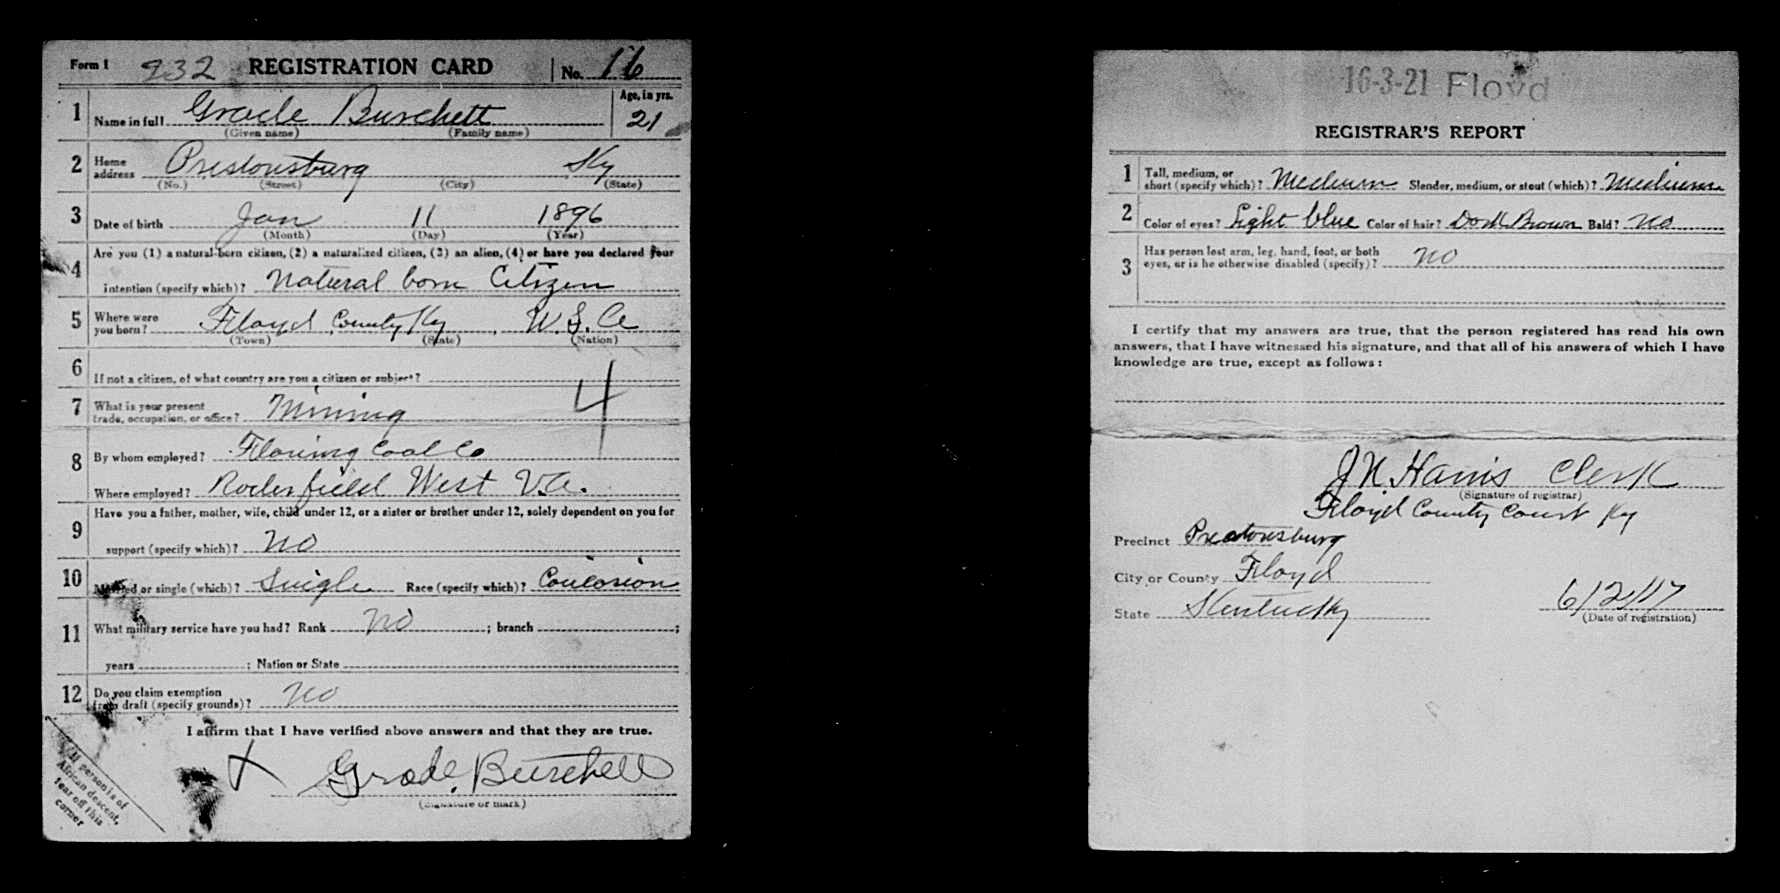 Form 1 932 REGISTRATION CARD No. 16
1 Name in full Gracle Burchett Age, in yrs. 21
(Given name) (Family name)
2 Home address Prestonsburg Ky
(No.) (Street) (City) (State)
3 Date of birth Jan 11 1896
(Month) (Day) (Year)
4 Are you (1) a natural-born citizen, (2) a naturalized citizen, (3) an alien, (4) or have you declared your
intention (specify which)? Natural born Citizen
5 Where were you born? Floyd County Ky, U.S.A
(Town) (State) (Nation)
6 If not a citizen, of what country are you a citizen or subject?
7 What is your present trade, occupation, or office? Mining
4
8 By whom employed? Coal Co
Where employed? Roderfield West Va.
9 Have you a father, mother, wife, child under 12, or a sister or brother under 12, solely dependent on you for
support (specify which)? No
10 Married or single (which)? Single Race (specify which)? Coucasion
11 What military service have you had? Rank No ; branch ;
years ; Nation or State
12 Do you claim exemption from draft (specify grounds)? No
I affirm that I have verified above answers and that they are true.
X Burchett
(Signature or mark)
If person is of
African descent,
tear off this
corner
16-3-21 Floyd
REGISTRAR'S REPORT
1 Tall, medium, or short (specify which)? Medium Slender, medium, or stout (which)? Medium
2 Color of eyes? Light blue Color of hair? Dark Brown Bald? No
3 Has person lost arm, leg, hand, foot, or both eyes, or is he otherwise disabled (specify)? No
I certify that my answers are true, that the person registered has read his own
answers, that I have witnessed his signature, and that all of his answers of which I have
knowledge are true, except as follows:
J N Harris Clerk
(Signature of registrar)
Floyd County Court Ky
Precinct Prestonsburg
City or County Floyd
State Kentucky 6/2/17
(Date of registration)